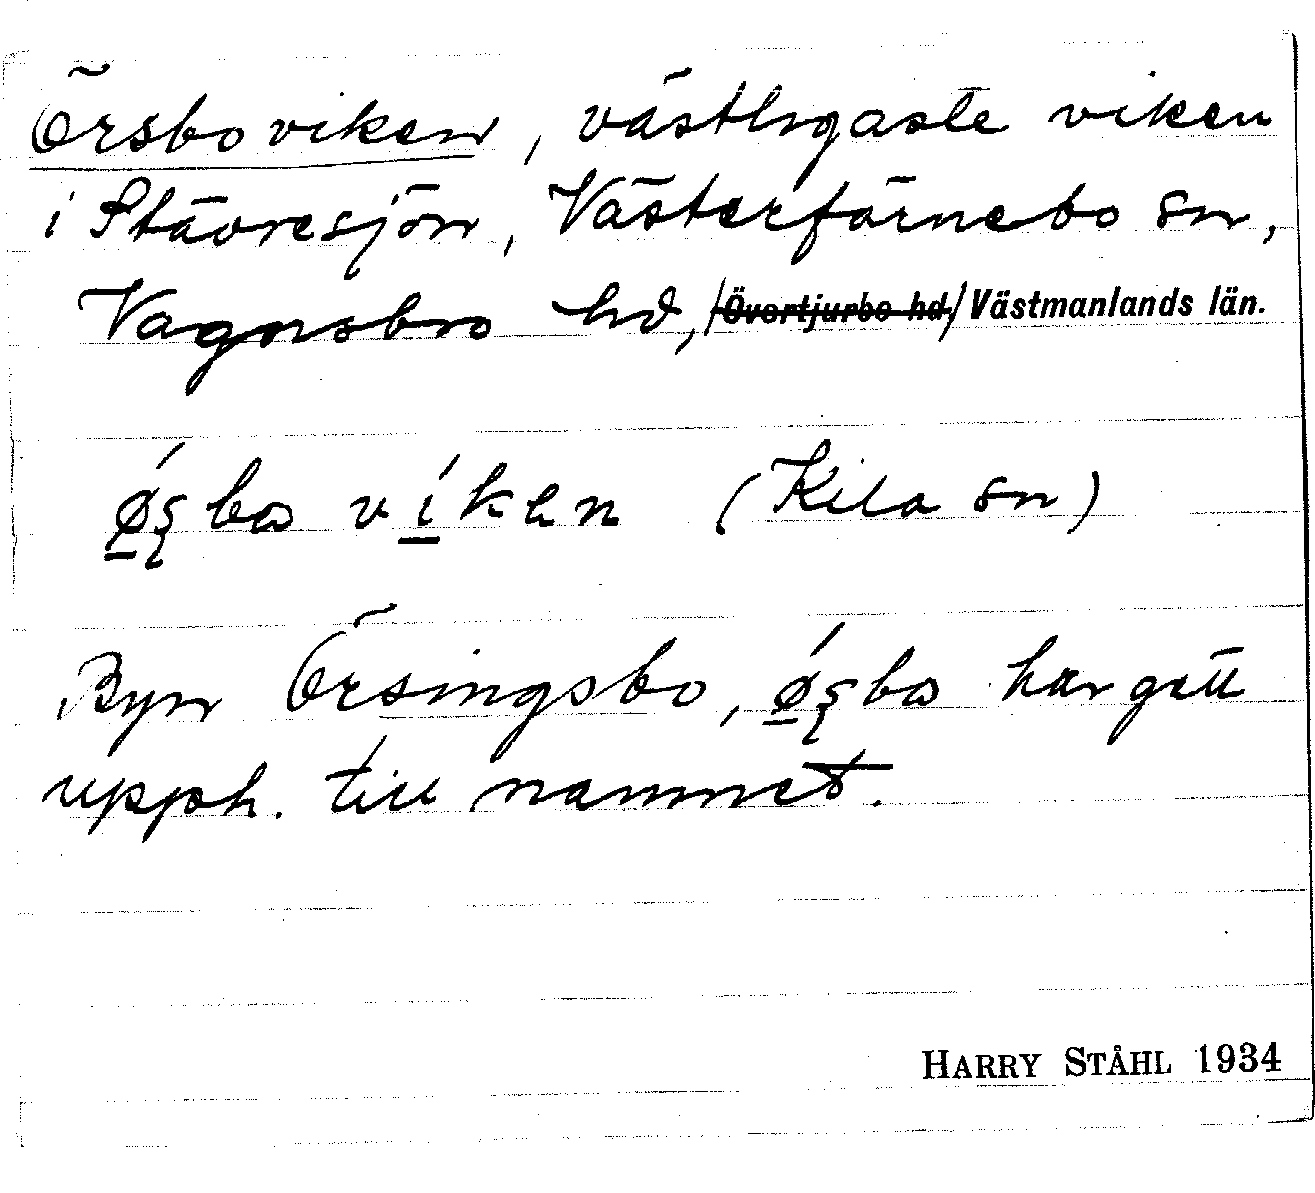 Örsboviken, västligaste viken
i Stävresjön, Västerfärnebo sn,
Vagnsbro hd, /Övertjurbo hd/ Västmanlands län.
ǿşbo víken (Kila sn)
Byn Örsingsbo, ǿşbo har gett
upph. till namnet.
HARRY STÅHL 1934